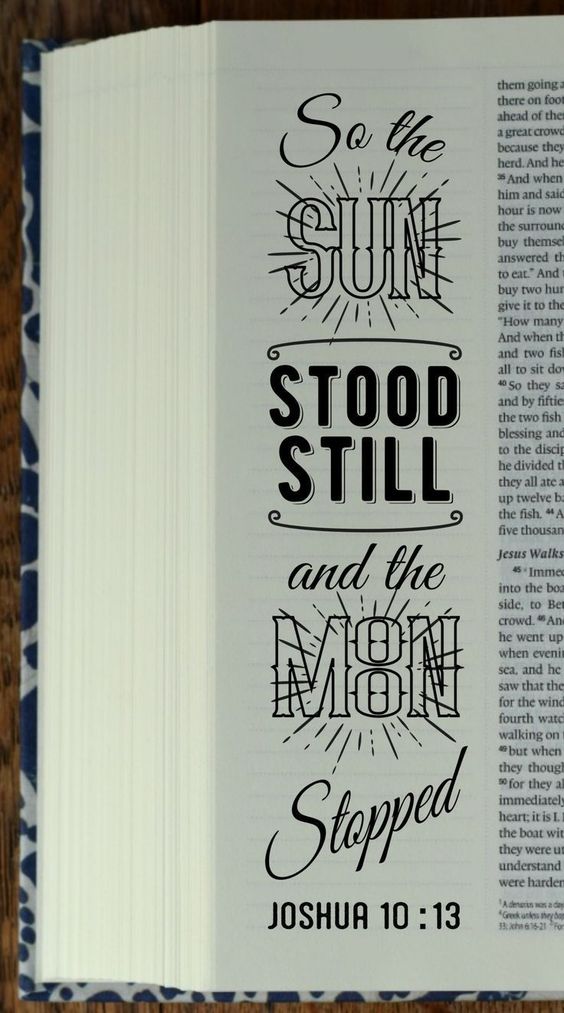 So the
SUN
STOOD
STILL
and the
MOON
Stopped
JOSHUA 10:13
them going a
there on foot
ahead of the
a great crowd
because they
herd. And he
35 And when
him and said
hour is now
the surroun
buy themse
answered th
to eat." And
buy two hun
give it to the
"How many
And when th
and two fis
all to sit do
40 So they sa
and by fiftie
the two fish
blessing and
to the discip
he divided t
they all ate a
up twelve ba
the fish. 44 A
five thousan
Jesus Walks
45 Immed
into the boa
side, to Bet
crowd. 46 And
he went up
when evenin
sea, and he
saw that the
for the wind
fourth watc
walking on
49 but when
they though
50 for they al
immediately
heart; it is I.
the boat wit
they were ut
understand
were harden
1 A denarius was a day
4 Greek unless they bap
33; John 6:16-21 2 For